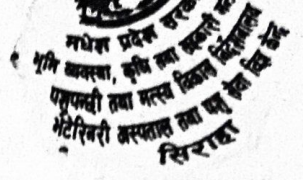 मधेश प्रदेश सरकार
भूमि व्यवस्था, कृषि तथा सहकारी
पशुपन्छी तथा मत्स्य विकास निर्देशनालय
भेटेरिनरी अस्पताल तथा पशु सेवा विज्ञ केन्द्र
सिराहा